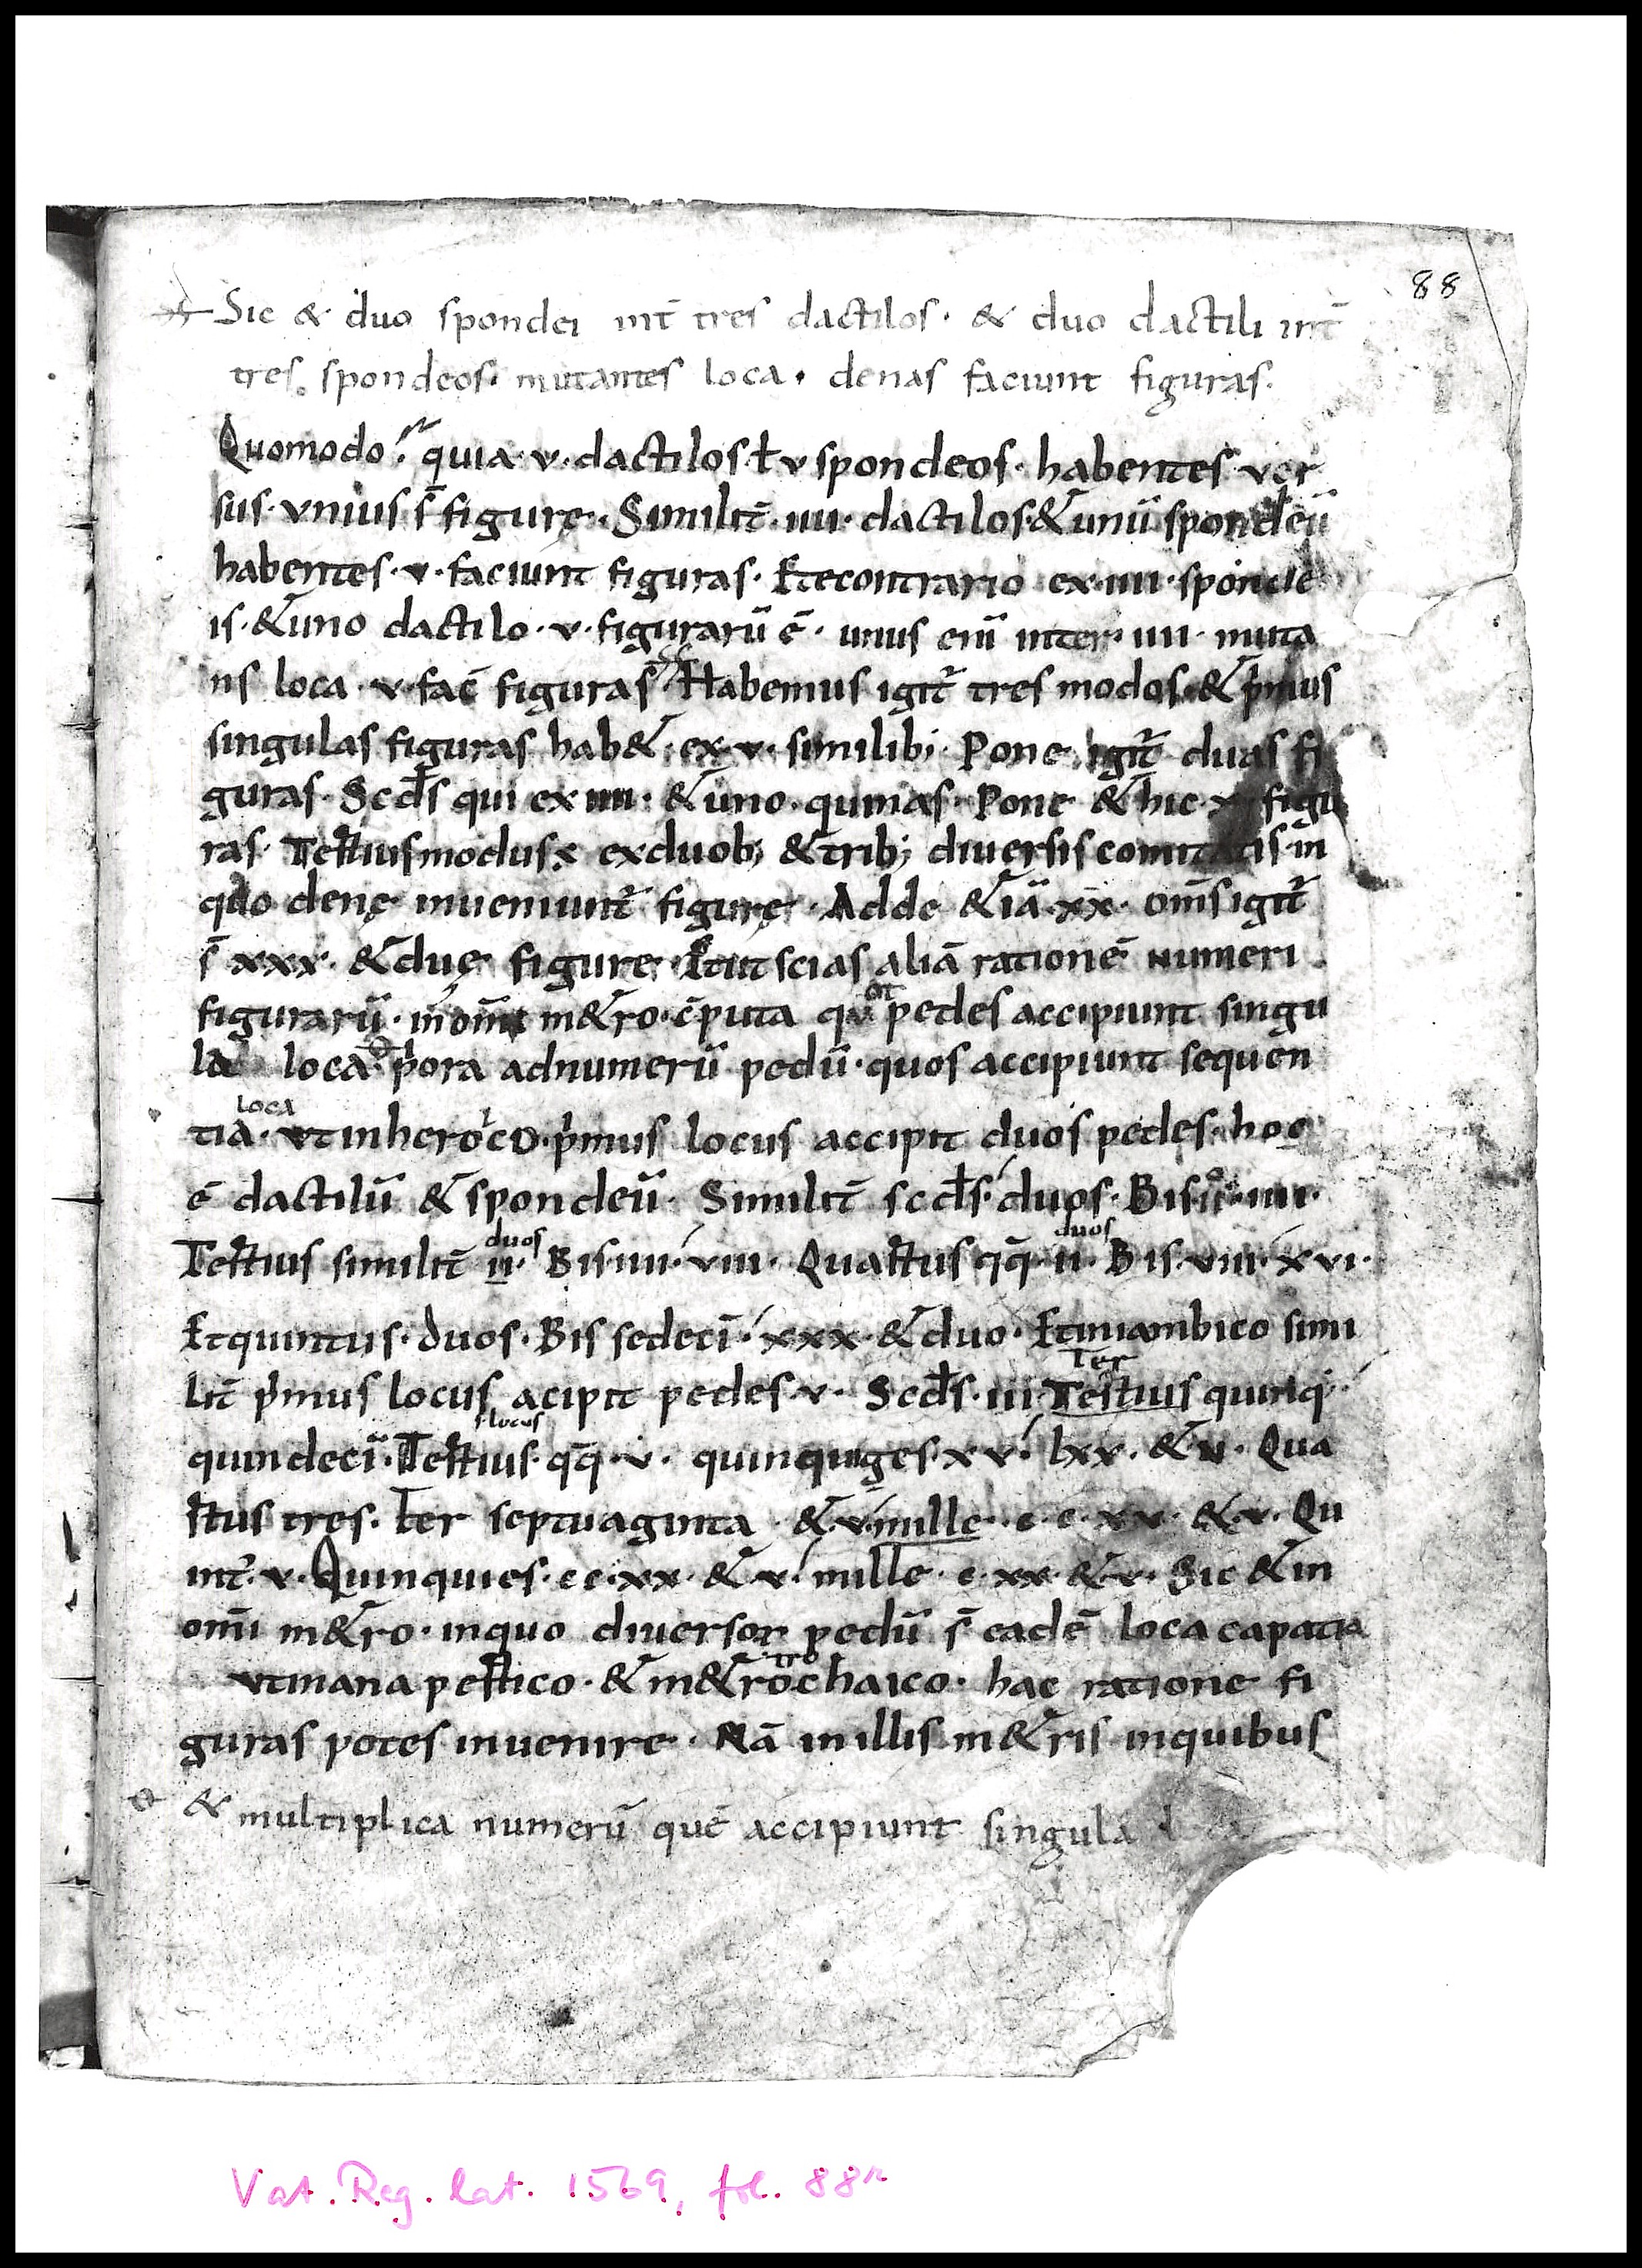 88
Sic & duo spondei int̄ tres dactilos · & duo dactili int̄
tres spondeos · mutantes loca · denas faciunt figuras ·
Quomodo? quia · v · dactilos · ł v spondeos · habentes ver
sus · unius s̄ figurę · Similit̄ · iiii · dactilos · & unū spondeū
habentes · v · faciunt figuras · Et econtrario ex · iiii · sponde
is · & uno dactilo · v · figurarū ē · unus enī inter · iiii · muta
ns loca · v · fac̄ figuras Habemus igit̄ tres modos · & pͥmus
singulas figuras hab& · ex · v · similib; · Pone igit̄ duas fi
guras · Scd̄s qui ex iiii · & uno · quinas · Pone & hic · x · figu
ras · Tertius modus ex duob; & trib; diversis comitatis · in
quo denę inveniunt̄ figurę · Adde & iā · xx · om̄s igit̄
s̄ xxx · & duę figurę · Et ut scias aliā rationē numeri
figurarū · in om̄i m&ro · c̄puta quot pedes accipiunt singu
la loca · pͥora ad numerū pedū · quos accipiunt sequen
loca
tia · ut in heroico · pͥmus locus accipit duos pedes · hoc
ē dactilū & spondeū · Similit̄ scd̄s · duos · Bis · ii · iiii ·
duos duos
Tertius similit̄ ii · Bis · iiii · viii · Quartus qq̄ · ii · Bis · viii · xvi ·
Et quintus · duos · Bis sedecī · xxx · & duo · Et in iambico simi
Ter
lit̄ pͥmus locus acipit pedes · v · Scd̄s · iii · Tertius quinq;
s · locus
quindecī · Tertius · qq̄ · v · quinquiges · xv · lxx · & v · Qua
rtus tres · ter septuaginta · & · v · mille · c · c · xx · & · v · Qu
int᾽ · v · Quinquies · cc · xx · & v · mille · c · xx · & v · Sic & in
om̄i m&ro · in quo diversoꝝ pedū s̄ eadē loca capatia
tro
ut in anapestico · & in m&ro chaico · hac ratione fi
guras potes invenire · Nā in illis m&ris in quibus
& multiplica numerū quē accipiunt singula
Vat. Reg. lat. 1569, fol. 88r